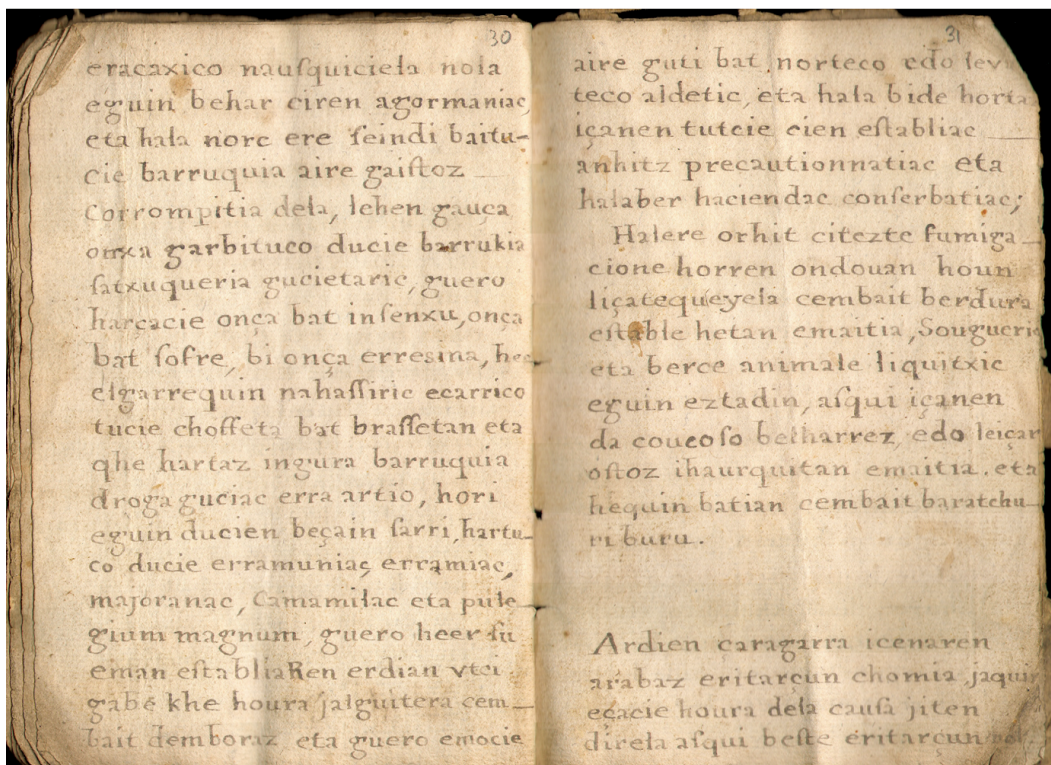 30
eracaxico nauſquicieła nola
eguin behar ciren agormaniac,
eta hala norc ere ſeindi baitu-
cie barruquia aire gaiſtoz
corrompitia dela, lehen gauça
onxa garbituco ducie barrukia
ſatxuqueria gucietaric, guero
harçacie onça bat inſenxu, onça
bat ſofre, bi onça erresina, hec
elgarrequin nahaſſiric ecarrico
tucie choffeta bat braſſetan eta
qhe hartaz ingura barruquia
droga guciac erra artio, hori
eguin ducien beçain ſarri, hartu-
co ducie erramuniac, erramiac,
majoranac, Camamilac eta pule
gium magnum, guero heer ſu
eman eſtabliaRen erdian vtci
gabe khe houra jalguitera cem
bait demboraz eta guero emocie
31
aire guti bat, norteco edo lev
teco aldetic, eta hala bide horta
içanen tutcie cien eſtabliac
anhitz precautionnatiac eta
halaber haciendac conſerbatiac;
Halere orhit citezte fumiga
cione horren ondouan houn
liçatequeyela cembait berdura
eſtable hetan emaitia, Sougueric
eta berce animale liquitxic
eguin eztadin, aſqui içanen
da coucoſo belharrez, edo leiçar
oſtoz ihaurquitan emaitia. eta
hequin batian cembait baratchu
ri buru.
Ardien caragarra icenaren
arabaz eritarçun chomia jaquin
eçacie houra dela cauſa jiten
direla aſqui beſte eritarçun